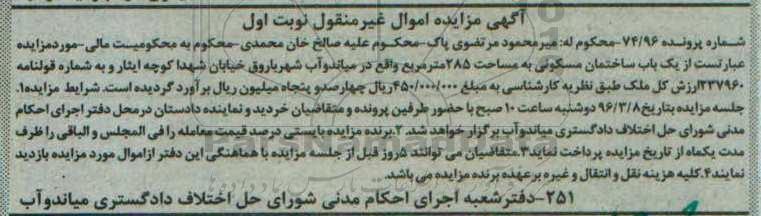 آگهی مزایده اموال غیرمنقول نوبت اول
شماره پرونده ۷۴/۹۶-محکوم له: میرمحمود مرتضوی پاک-محکوم علیه صالح خان محمدی-محکوم به محکومیت مالی-موردمزایده
عبارتست از یک باب ساختمان مسکونی به مساحت ۲۸۵مترمربع واقع در میاندوآب شهریاروق خیابان شهدا کوچه ایثار و به شماره قولنامه
۲۳۷۹۶۰ارزش کل ملک طبق نظریه کارشناسی به مبلغ ۴۵۰/۰۰۰/۰۰۰ریال چهارصدو پنجاه میلیون ریال برآورد گردیده است. شرایط مزایده۱.
جلسه مزایده بتاریخ۹۶/۳/۸ دوشنبه ساعت ۱۰ صبح با حضور طرفین پرونده و متقاضیان خردید و نماینده دادستان درمحل دفتر اجرای احکام
مدنی شورای حل اختلاف دادگستری میاندوآب برگزار خواهد شد. ۲.برنده مزایده بایستی درصد قیمت معامله را فی المجلس و الباقی را ظرف
مدت یکماه از تاریخ مزایده پرداخت نماید۳.متقاضیان می توانند ۵روز قبل از جلسه مزایده با هماهنگی این دفتر ازاموال مورد مزایده بازدید
نمایند۴.کلیه هزینه نقل و انتقال و غیره برعهده برنده مزایده می باشد.
۲۵۱-دفترشعبه اجرای احکام مدنی شورای حل اختلاف دادگستری میاندوآب